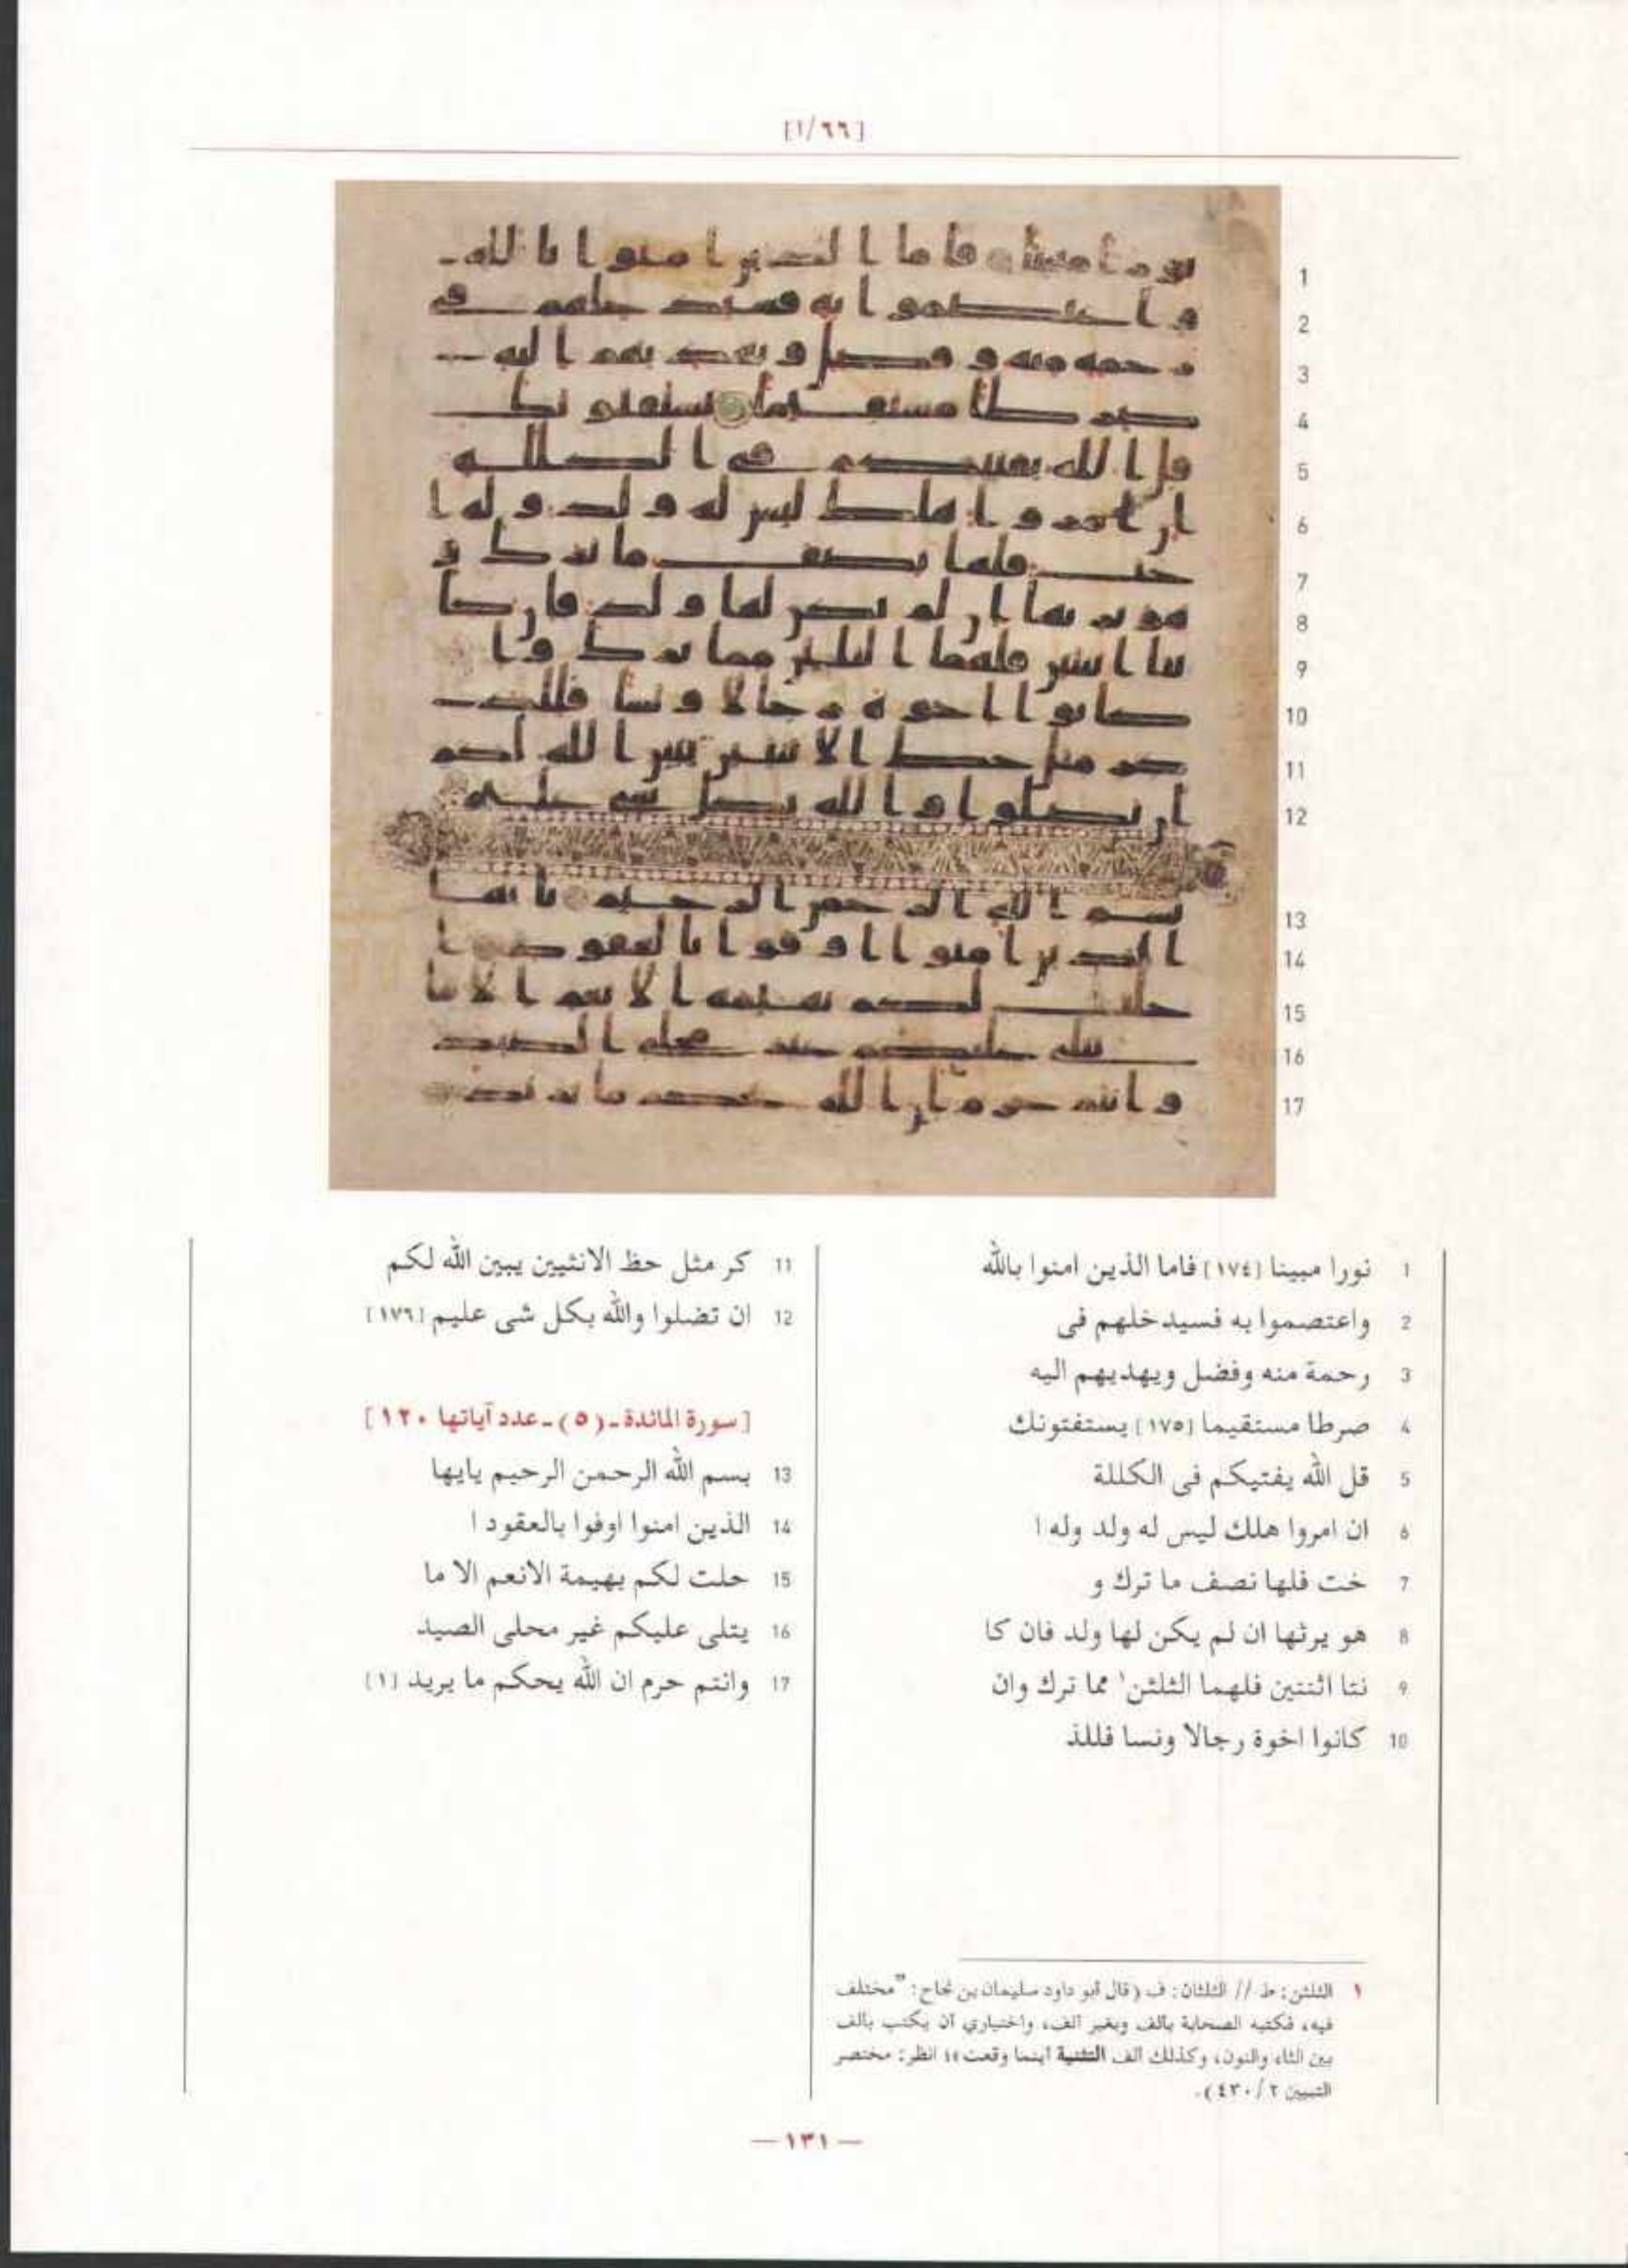 [٦٦/ا]
1
2
3
4
5
6
7
8
9
10
11
12
13
14
15
16
17
1 نورا مبينا [١٧٤] فاما الذين امنوا بالله
2 واعتصموا به فسيدخلهم فى
3 رحمة منه وفضل ويهديهم اليه
4 صرطا مستقيما [١٧٥] يستفتونك
5 قل الله يفتيكم فى الكللة
6 ان امروا هلك ليس له ولد وله ا
7 خت فلها نصف ما ترك و
8 هو يرثها ان لم يكن لها ولد فان كا
9 نتا اثنتين فلهما الثلثن١ مما ترك وان
10 كانوا اخوة رجالا ونسا فللذ
11 كر مثل حظ الانثيين يبين الله لكم
12 ان تضلوا والله بكل شى عليم [١٧٦]
[سورة المائدة ـ (٥) ـ عدد آياتها ١٢٠]
13 بسم الله الرحمن الرحيم يايها
14 الذين امنوا اوفوا بالعقود ا
15 حلت لكم بهيمة الانعم الا ما
16 يتلى عليكم غير محلى الصيد
17 وانتم حرم ان الله يحكم ما يريد [١]
١ الثلثن: ط // الثلثان: ف (قال أبو داود سليمان بن نجاح: "مختلف
فيه، فكتبه الصحابة بألف وبغير ألف، واختياري أن يكتب بألف
بين الثاء والنون، وكذلك ألف التثنية أينما وقعت"؛ انظر: مختصر
التبيين ٢/ ٤٣٠).
— ١٣١ —